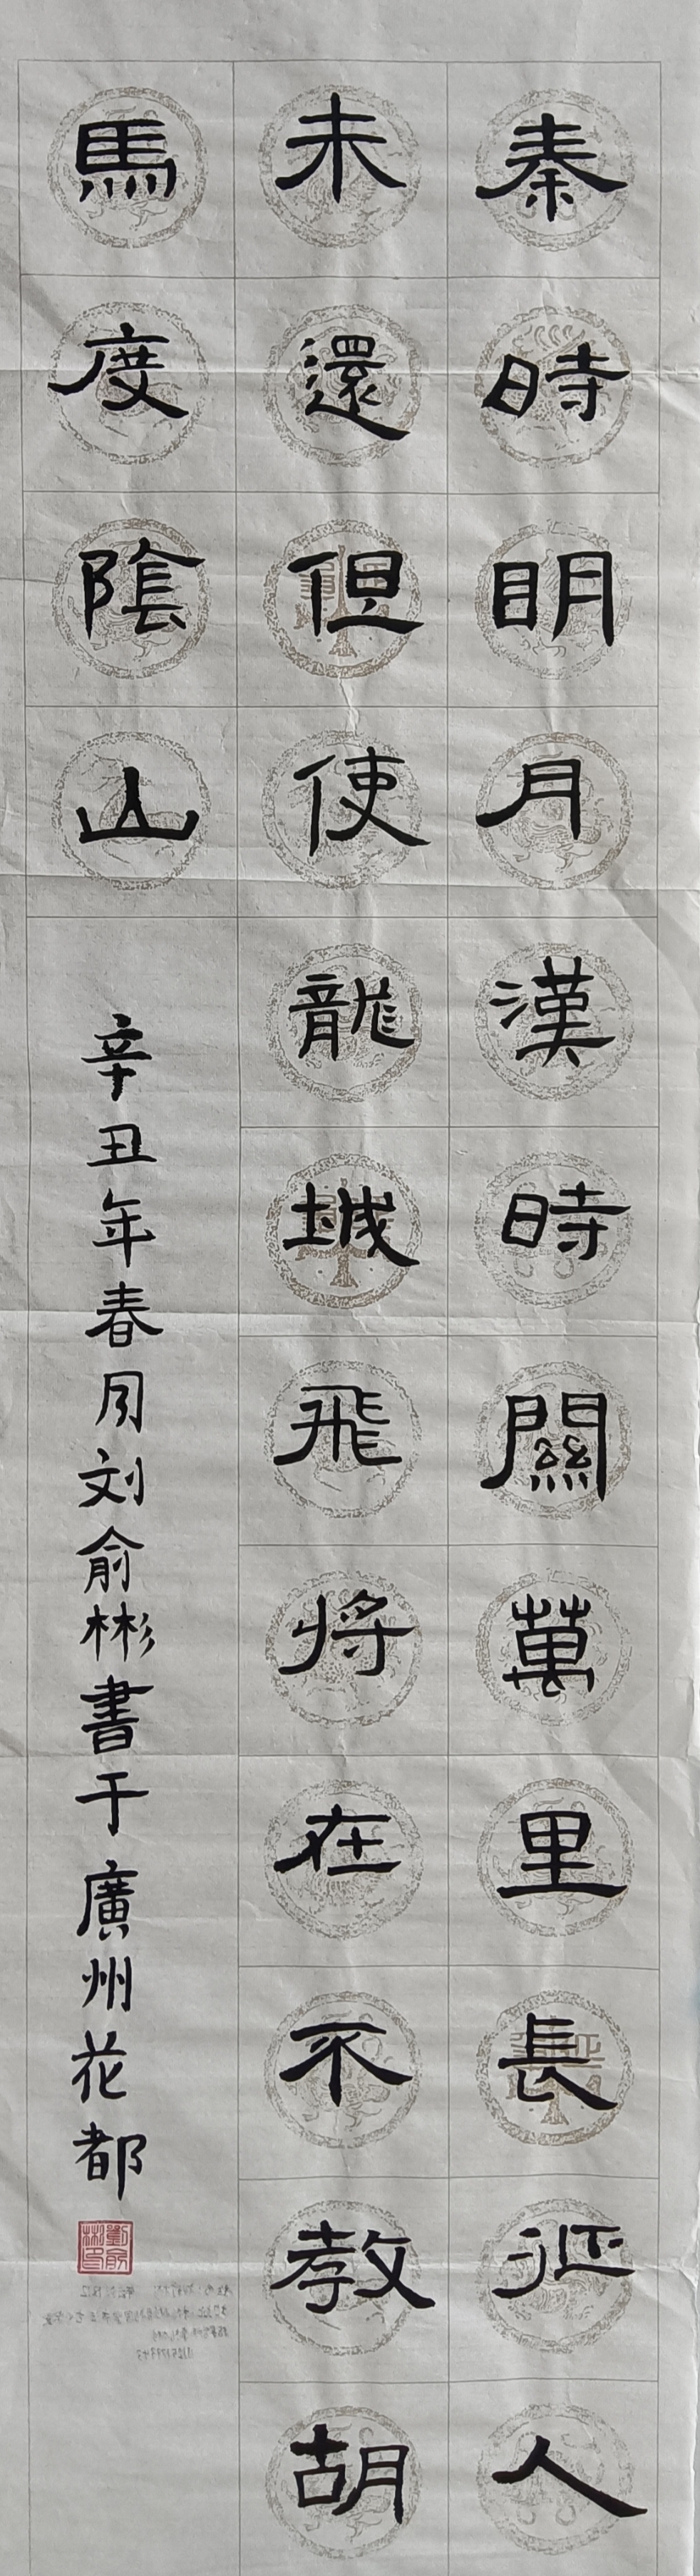 秦時明月漢時關萬里長征人
未還但使龍城飛將在不教胡
馬度陰山
辛丑年春月刘俞彬書于廣州花都
劉俞彬印